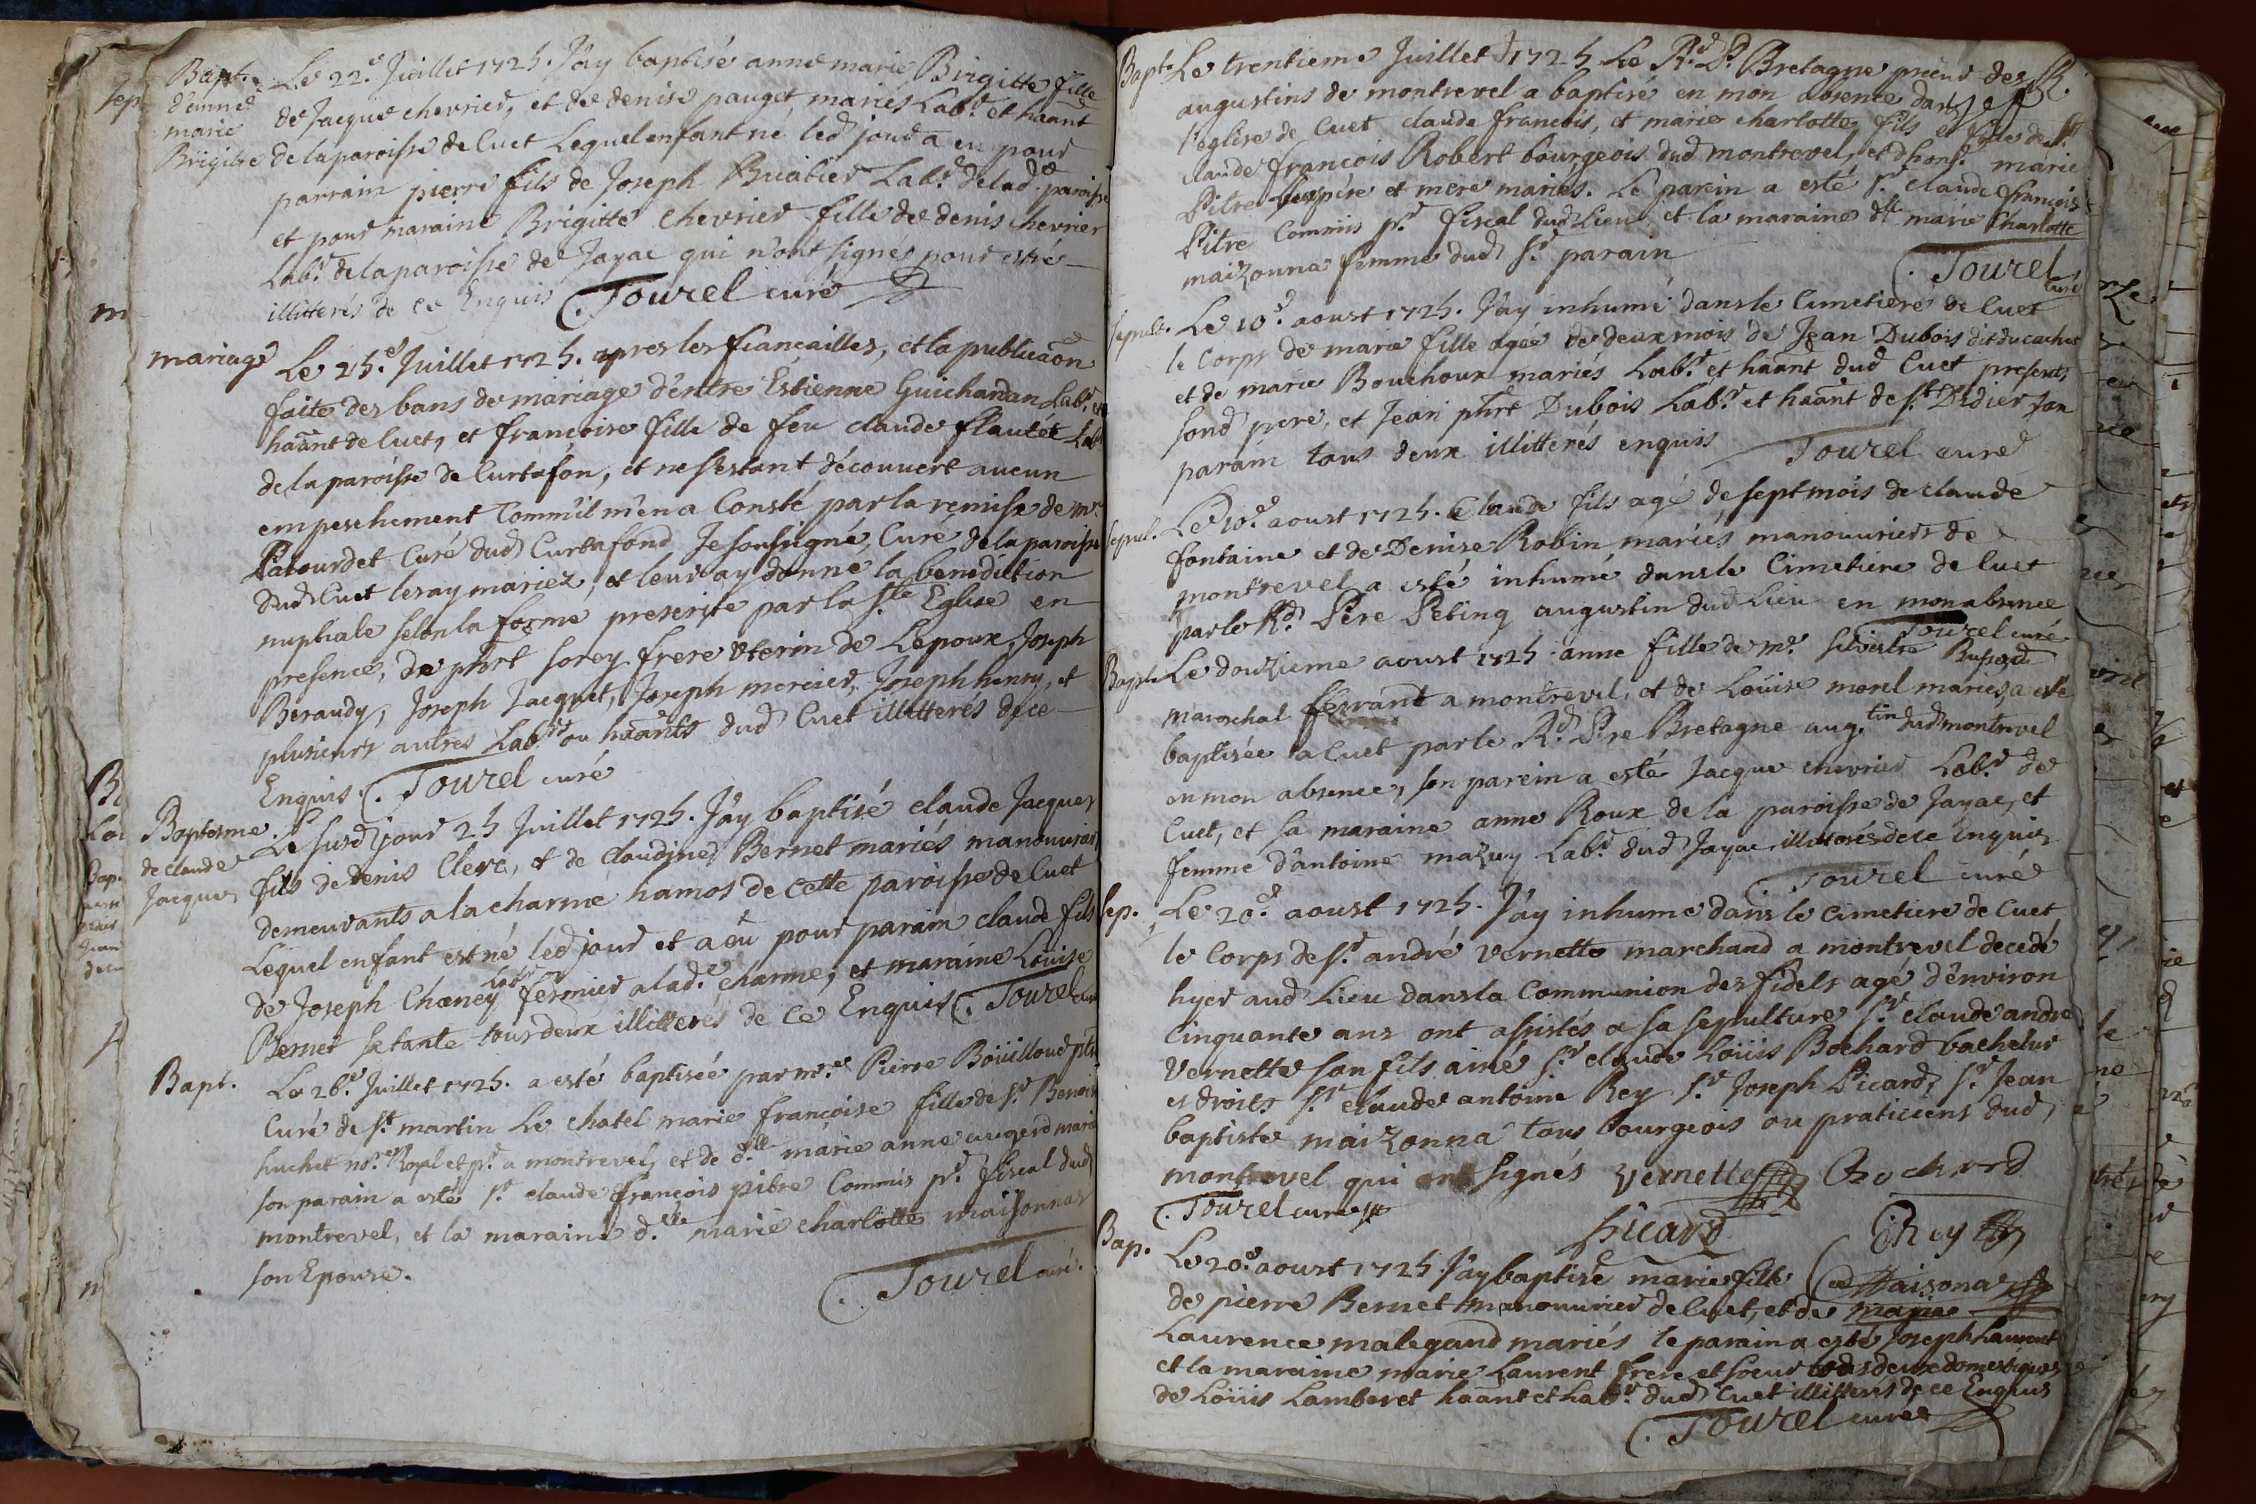 Bapt. Le 22.e Juillet 1725. J'ay baptisé anne marie Brigitte fille
d'anne
marie
Brigitte
de Jacque chevrier, et de denise pauget mariés Lab.r et haant
de la paroisse de Cuet Lequel enfant né led jour a eu pour
parrain pierre fils de Joseph Buatier Lab.r de lad.e paroisse
et pour maraine Brigitte chevrier fille de denis chevrier
Lab.r de la paroisse de Jayac qui n'ont signés pour estre
illitterés de ce Enquis Tourel curé
mariage Le 25.e Juillet 1725. apres les fiancailles, et la publicaon
faite des bans de mariage d'entre Estienne Guichardan Lab.r et
haant de Cuet, et francoise fille de feu claude flautét Lab.r
de la paroisse de Curtafon, et ne s'estant découvert aucun
empeschement Comm'il m'en a Consté par la remise de m.re
Patourdet Curé dud Curtafond Je soussigné, Curé de la paroisse
dud Cuet les ay mariez, et leur ay donné la benediction
nuptiale selon la forme prescrite par la s.te Eglise en
presence, de phrt sorey frere uterin de L'epoux, Joseph
Beraudy, Joseph Jacquet, Joseph mercier, Joseph henry, et
plusieurs autres Lab.rs ou haants dud Cuet illitterés de ce
Enquis. Tourel curé
Baptesme
de claude
Jacques
Le susd jour 25 Juillet 1725. J'ay baptisé claude Jacques
fils de Denis Clerc, et de Claudine Bernet mariés manouvriers
demeurants a la charme hamos de cette paroisse de Cuet
Lequel enfant est né led jour et a éu pour parain claude fils
de Joseph Chaney Lab.r fermier a lad.e charme, et maraine Louise
Bernet sa tante tous deux illitterés de ce Enquis. Tourel curé
Bapt. Le 26.e Juillet 1725. a esté baptisée par m.re Pierre Boüilloud ptre
Curé de s.t martin Le chatel marie francoise fille de s.r Benoit
huchet no.re Royal et p.r a montrevel, et de d.lle marie anne augerd mariés
son parain a esté s.r claude francois pitre Commis p.r fiscal dud
montrevel, et la maraine d.lle marie charlotte maisonnas
son Epouse.
Tourel curé.
Bapt. Le trentieme Juillet 1725 Le R.d P. Bretagne prieur des RR.
augustins de montrevel a baptisé en mon absence dans
l'église de Cuet claude francois, et marie charlotte, fils et filles de s.r
claude francois Robert bourgeois dud montrevel, et d'hon.e marie
Pitre ses pere et mere mariés. Le parein a esté s.r claude francois
Pitre Commis p.r fiscal dud Lieu, et la maraine d.lle marie Charlotte
maizonna femme dud s.r parain
Tourel curé
sepult. Le 10.e aoust 1725. J'ay inhumé dans le Cimetiere de Cuet
le Corps de marie fille agée de deux mois de Jean Dubois dit du cachet
et de marie Bouchoux mariés Lab.r et haant dud Cuet presents
sond pere, et Jean phrt Dubois Lab.r et haant de s.t Didier son
parain tous deux illitterés enquis Tourel curé
sepul. Le 10.e aoust 1725. Claude fils agé de sept mois de claude
fontaine et de Denise Robin mariés manouuriers de
montrevel a esté inhumé dans le Cimetiere de Cuet
par le R.d Pere Peting augustin dud Lieu en mon absence
Tourel curé
Bapt. Le douzieme aoust 1725 anne fille de m.e silvestre
marechal ferrant a montrevel, et de Loüise morel mariés, a esté
baptisée a Cuet par le R.d P.re Bretagne aug.tin dud montrevel
en mon absence, son parein a esté Jacque chevrier Lab.r de
Cuet, et sa maraine anne Roux de la paroisse de Jayac, et
femme d'antoine mazuy Lab.r dud Jayac illitterés de ce Enquis
Tourel curé
Sep. Le 20.e aoust 1725. J'ay inhumé dans le Cimetiere de Cuet
le Corps de s.r andré Vernette marchand a montrevel decedé
hyer aud Lieu dans la Communion des fidels agé d'environ
cinquante ans ont assistés a sa sepulture s.r claude andre
Vernette son fils ainé s.r claude Loüis Bochard bachelier
es droits s.r claude antoine Rey s.r Joseph Picard, s.r Jean
baptiste maizonna tous bourgeois ou praticiens dud
montrevel qui ont signés Vernette Bochard
Tourel curé Picard Rey
Maisona
Bap. Le 20.e aoust 1725 J'ay baptisé marie fille
de pierre Bernet manouvrier de Cuet, et de marie
Laurence malegand mariés le parain a esté Joseph Laurent
et la maraine marie Laurent frere et soeur tous deux domestiques
de Loüis Lamberet haant et Lab.r dud Cuet illitterés de ce Enquis
Tourel curé